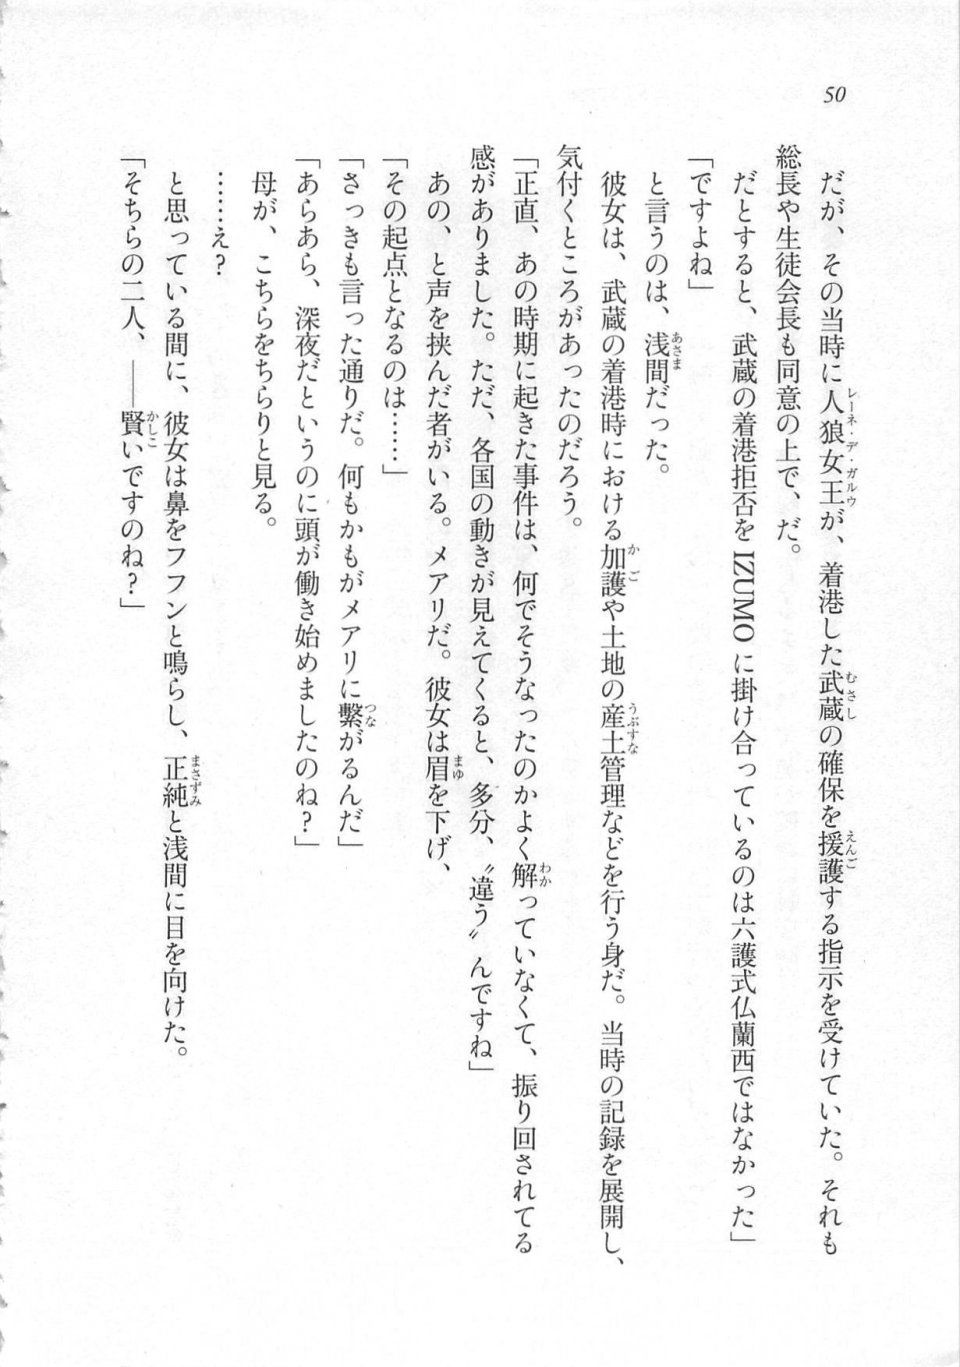 50
だが、その当時に人狼女王が、着港した武蔵の確保を援護する指示を受けていた。それも
レーネ・デ・ガルウ
むさし
えんご
総長や生徒会長も同意の上で、だ。
だとすると、武蔵の着港拒否を IZUMO に掛け合っているのは六護式仏蘭西ではなかった」
「ですよね」
と言うのは、浅間だった。
あさま
彼女は、武蔵の着港時における加護や土地の産土管理などを行う身だ。当時の記録を展開し、
かご
うぶすな
気付くところがあったのだろう。
「正直、あの時期に起きた事件は、何でそうなったのかよく解っていなくて、振り回されてる
わか
感がありました。ただ、各国の動きが見えてくると、多分、〝違う〟んですね」
あの、と声を挟んだ者がいる。メアリだ。彼女は眉を下げ、
まゆ
「その起点となるのは……」
「さっきも言った通りだ。何もかもがメアリに繋がるんだ」
つな
「あらあら、深夜だというのに頭が働き始めましたのね？」
母が、こちらをちらりと見る。
……え？
と思っている間に、彼女は鼻をフフンと鳴らし、正純と浅間に目を向けた。
まさずみ
「そちらの二人、――賢いですのね？」
かしこ